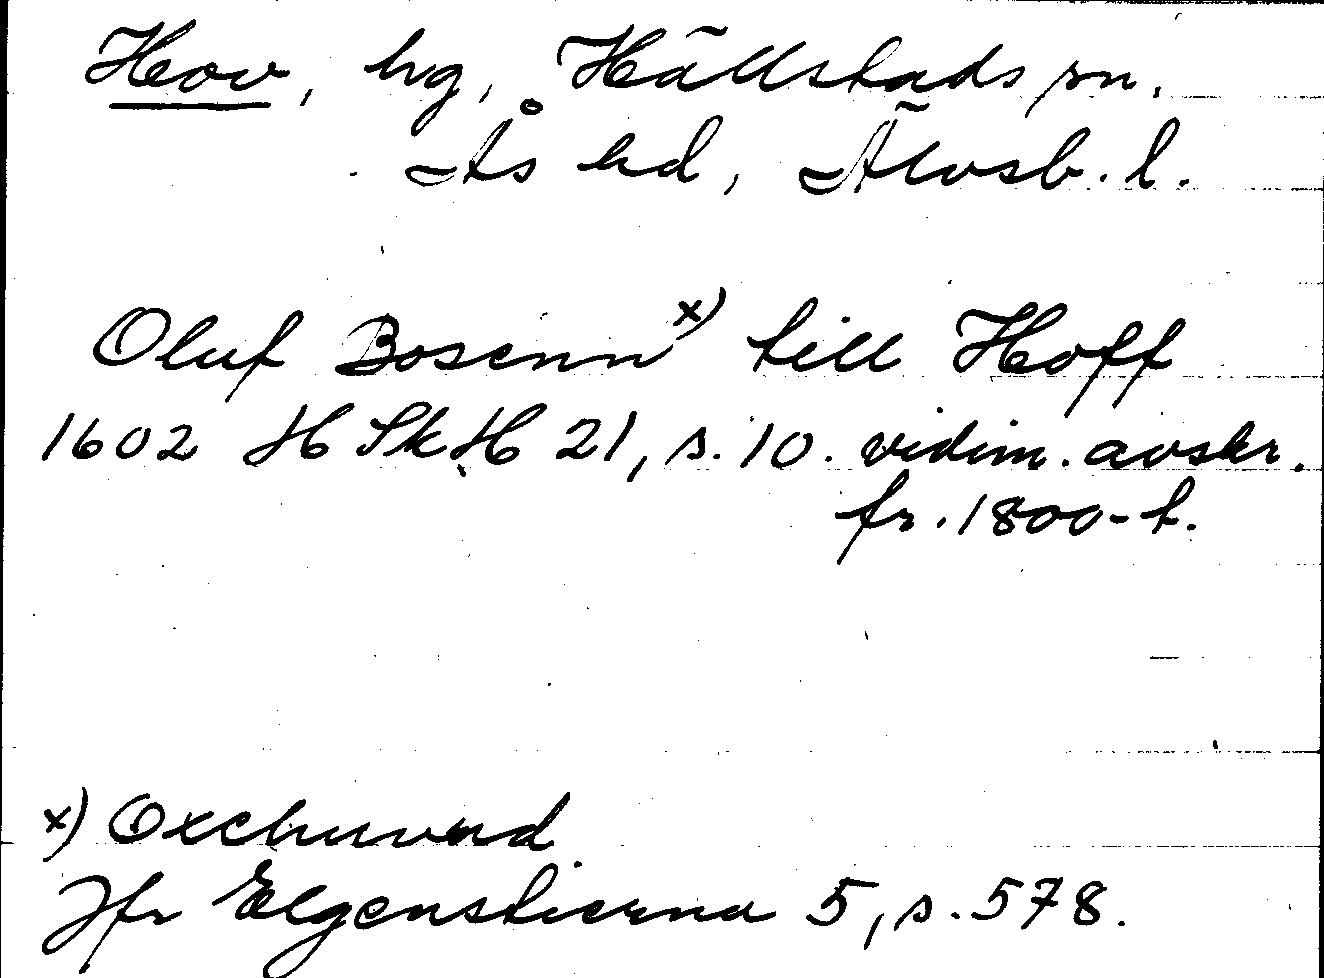 Hov, hg, Hällstads sn,
Ås hd, Älvsb. l.
Oluf Bosenn x) till Hoff
1602 HSkH 21, s. 10. vidim. avskr.
fr. 1800-t.
x) Oxehuvud
Jfr Elgenstierna 5, s. 578.